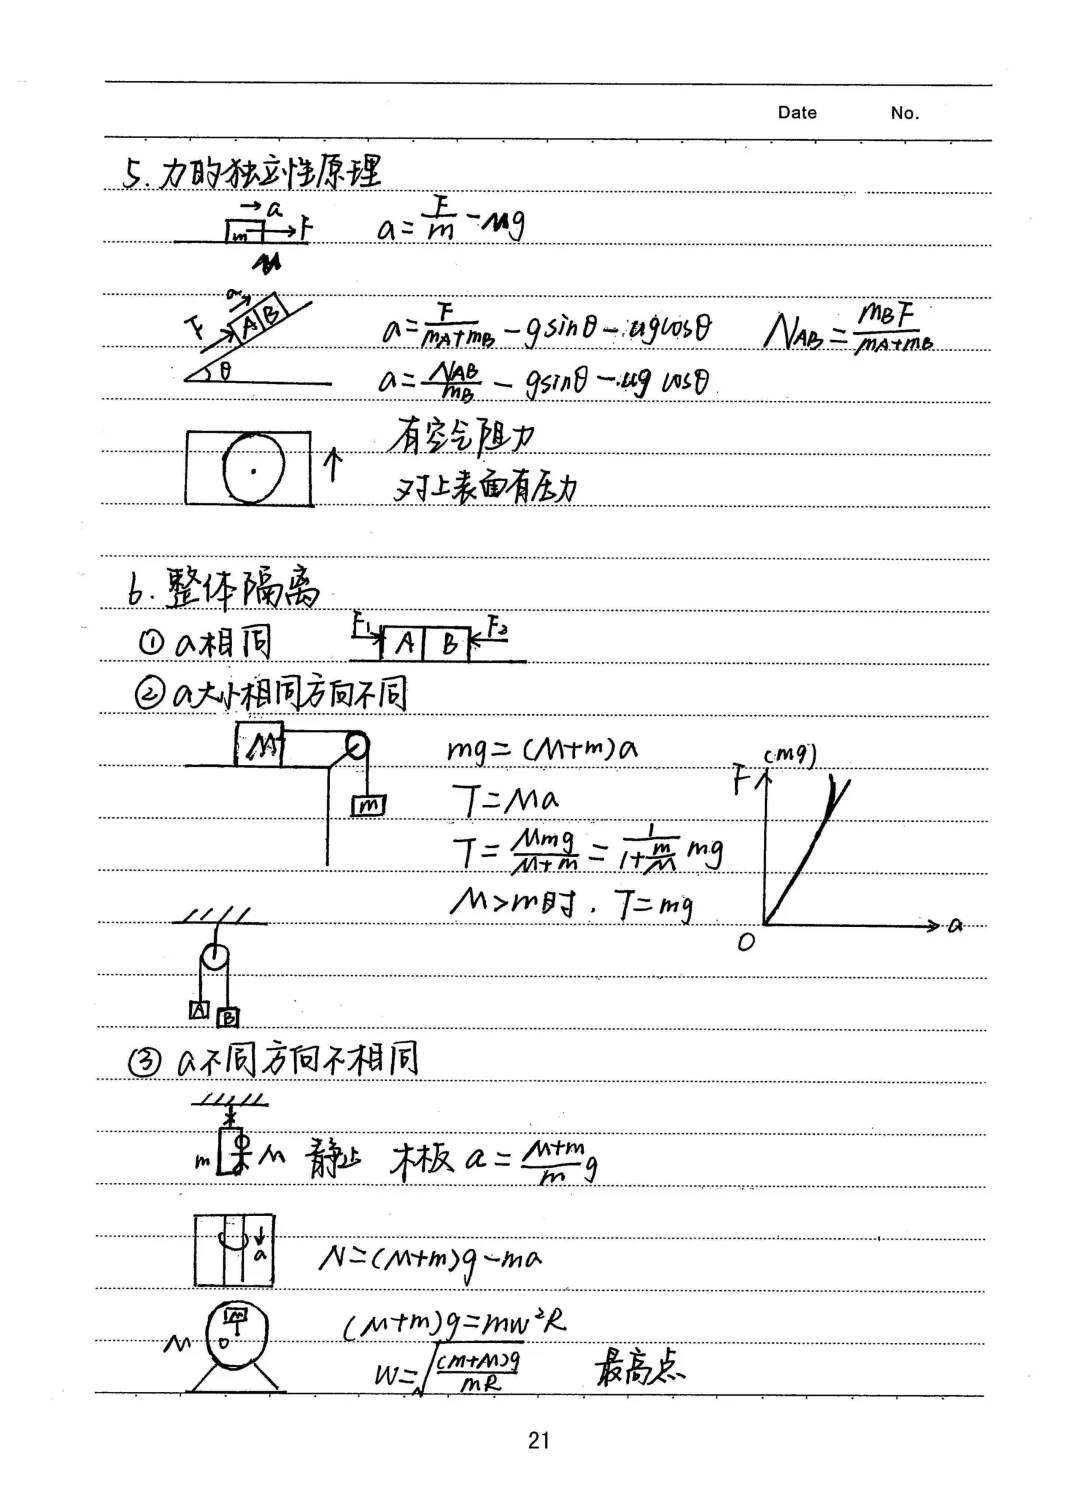 Date No.
5. 力的独立性原理
→a
m F a=F/m-μg
μ
a
F A B a=F/(mA+mB)-gsinθ-μgcosθ N_AB=mBF/(mA+mB)
θ a=N_AB/mB-gsinθ-μg cosθ
有空气阻力
对上表面有压力
6. 整体隔离
① a相同 F₁ A B F₂
② a大小相同方向不同
M m mg=(M+m)a
T=Ma
T=Mmg/(M+m)=1/(1+m/M) mg
M>m时. T=mg
F (mg)
O a
A B
③ a不同方向不相同
m M 静止 木板 a=(M+m)/m g
a N=(M+m)g-ma
M m O (M+m)g=mw²R
W=√((m+M)g/mR) 最高点
21